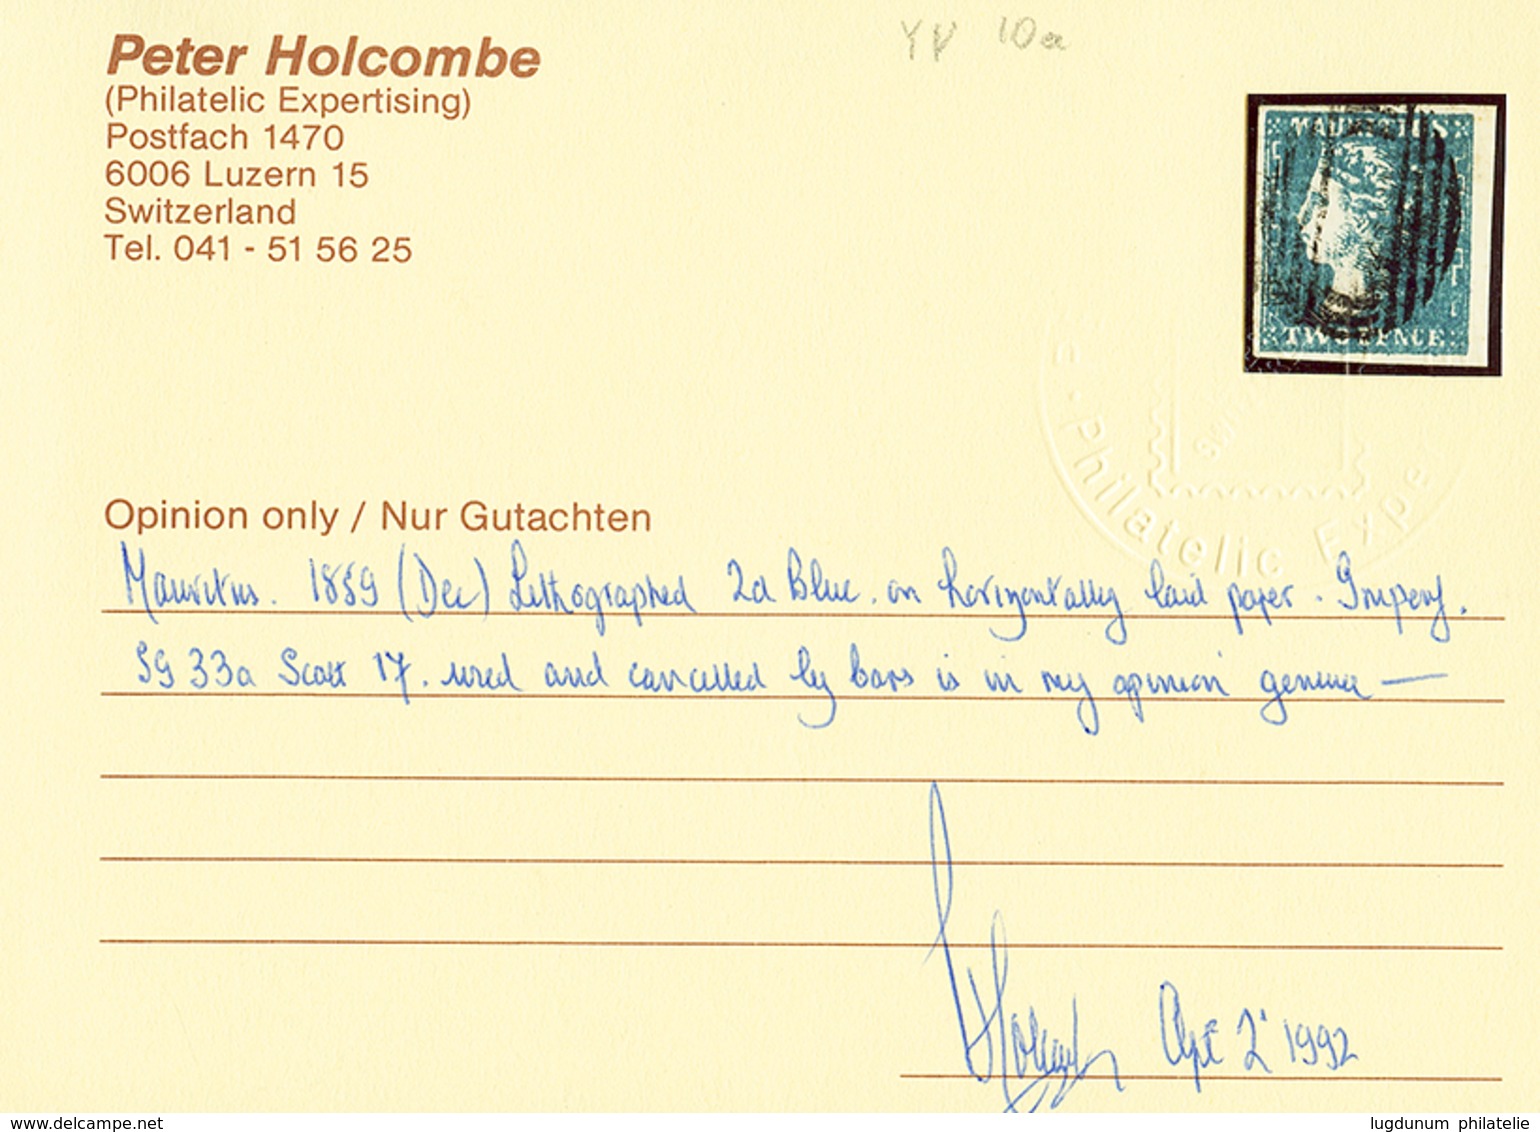 YV 10a
Peter Holcombe
(Philatelic Expertising)
Postfach 1470
6006 Luzern 15
Switzerland
Tel. 041 - 51 56 25
MAURITIUS
TWO PENCE
Philatelic Expe
Opinion only / Nur Gutachten
Mauritius. 1859 (Dec) Lithographed 2d Blue. on horizontally laid paper. Imperf.
SG 33a Scott 17. used and cancelled by bars is in my opinion genuine —
Holcombe Apr 2 1992
www.delcampe.net
lugdunum philatelie